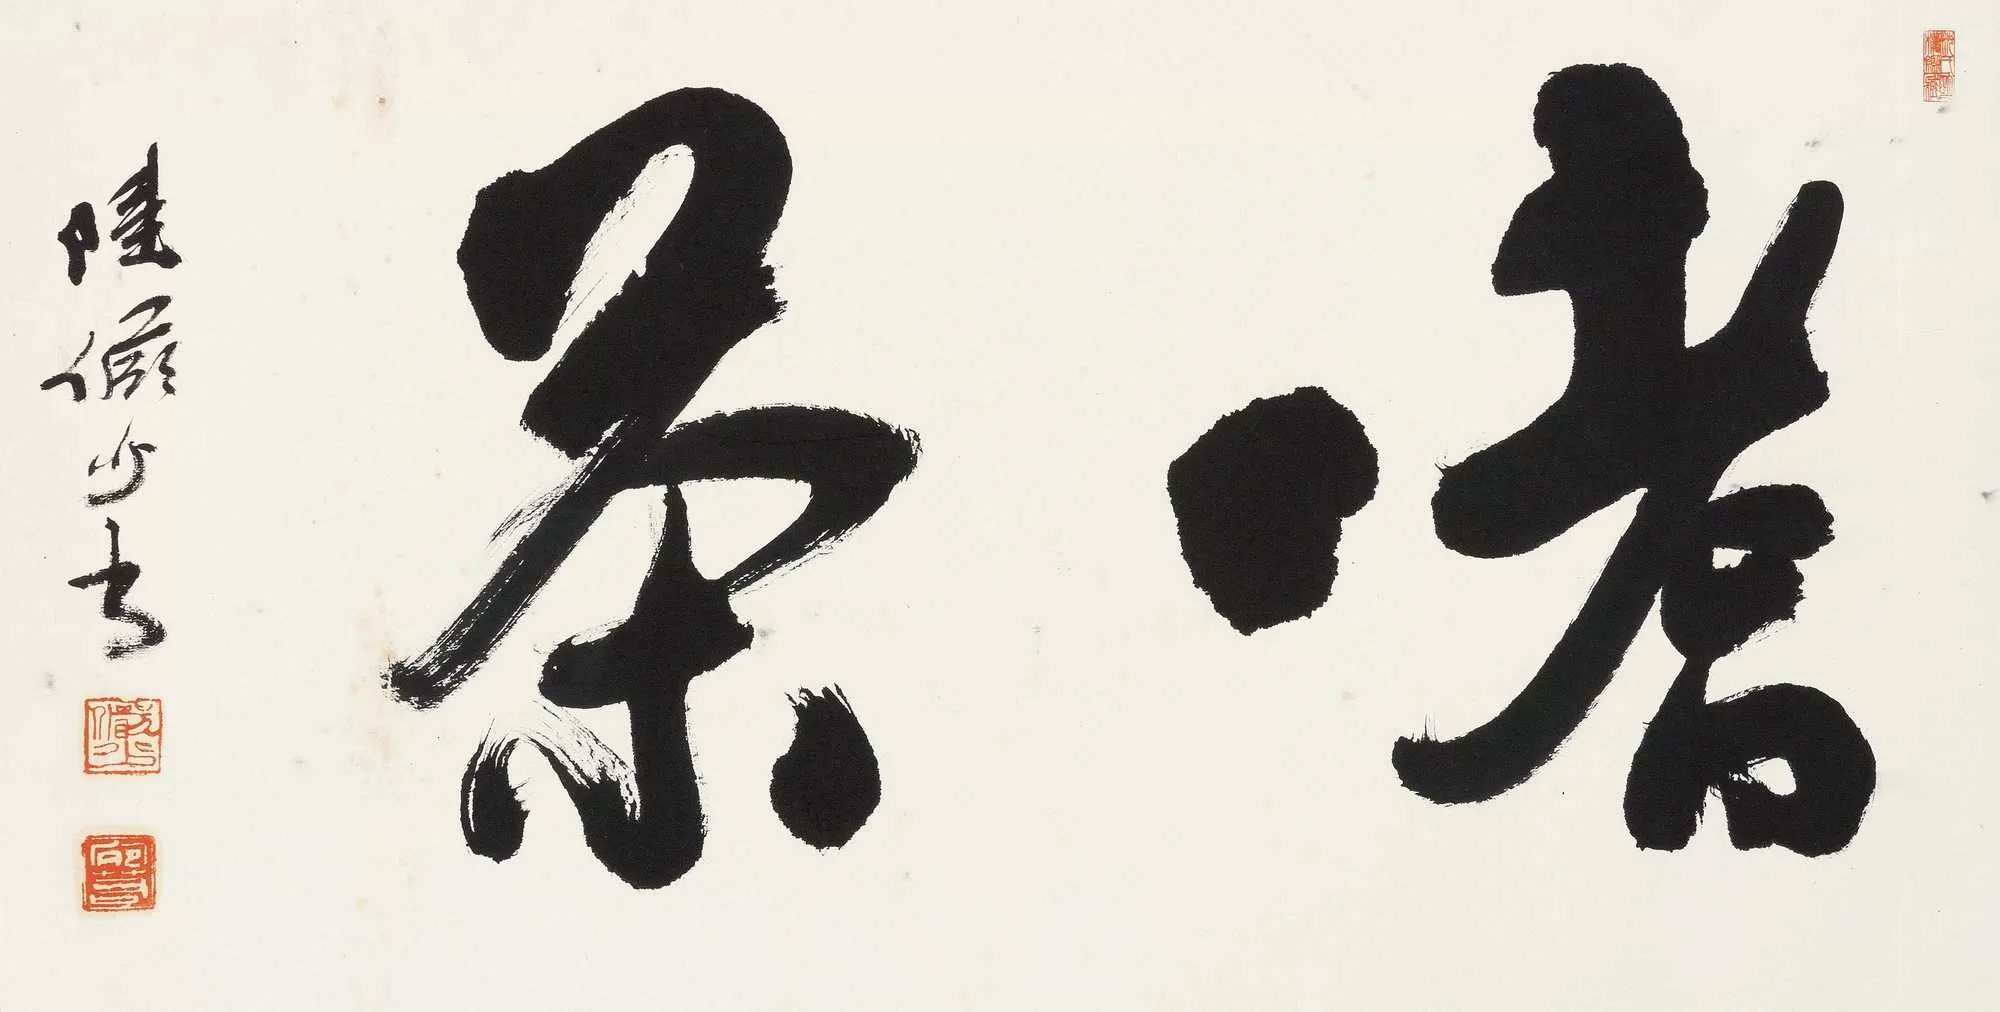 嗜茶
陸儼少書